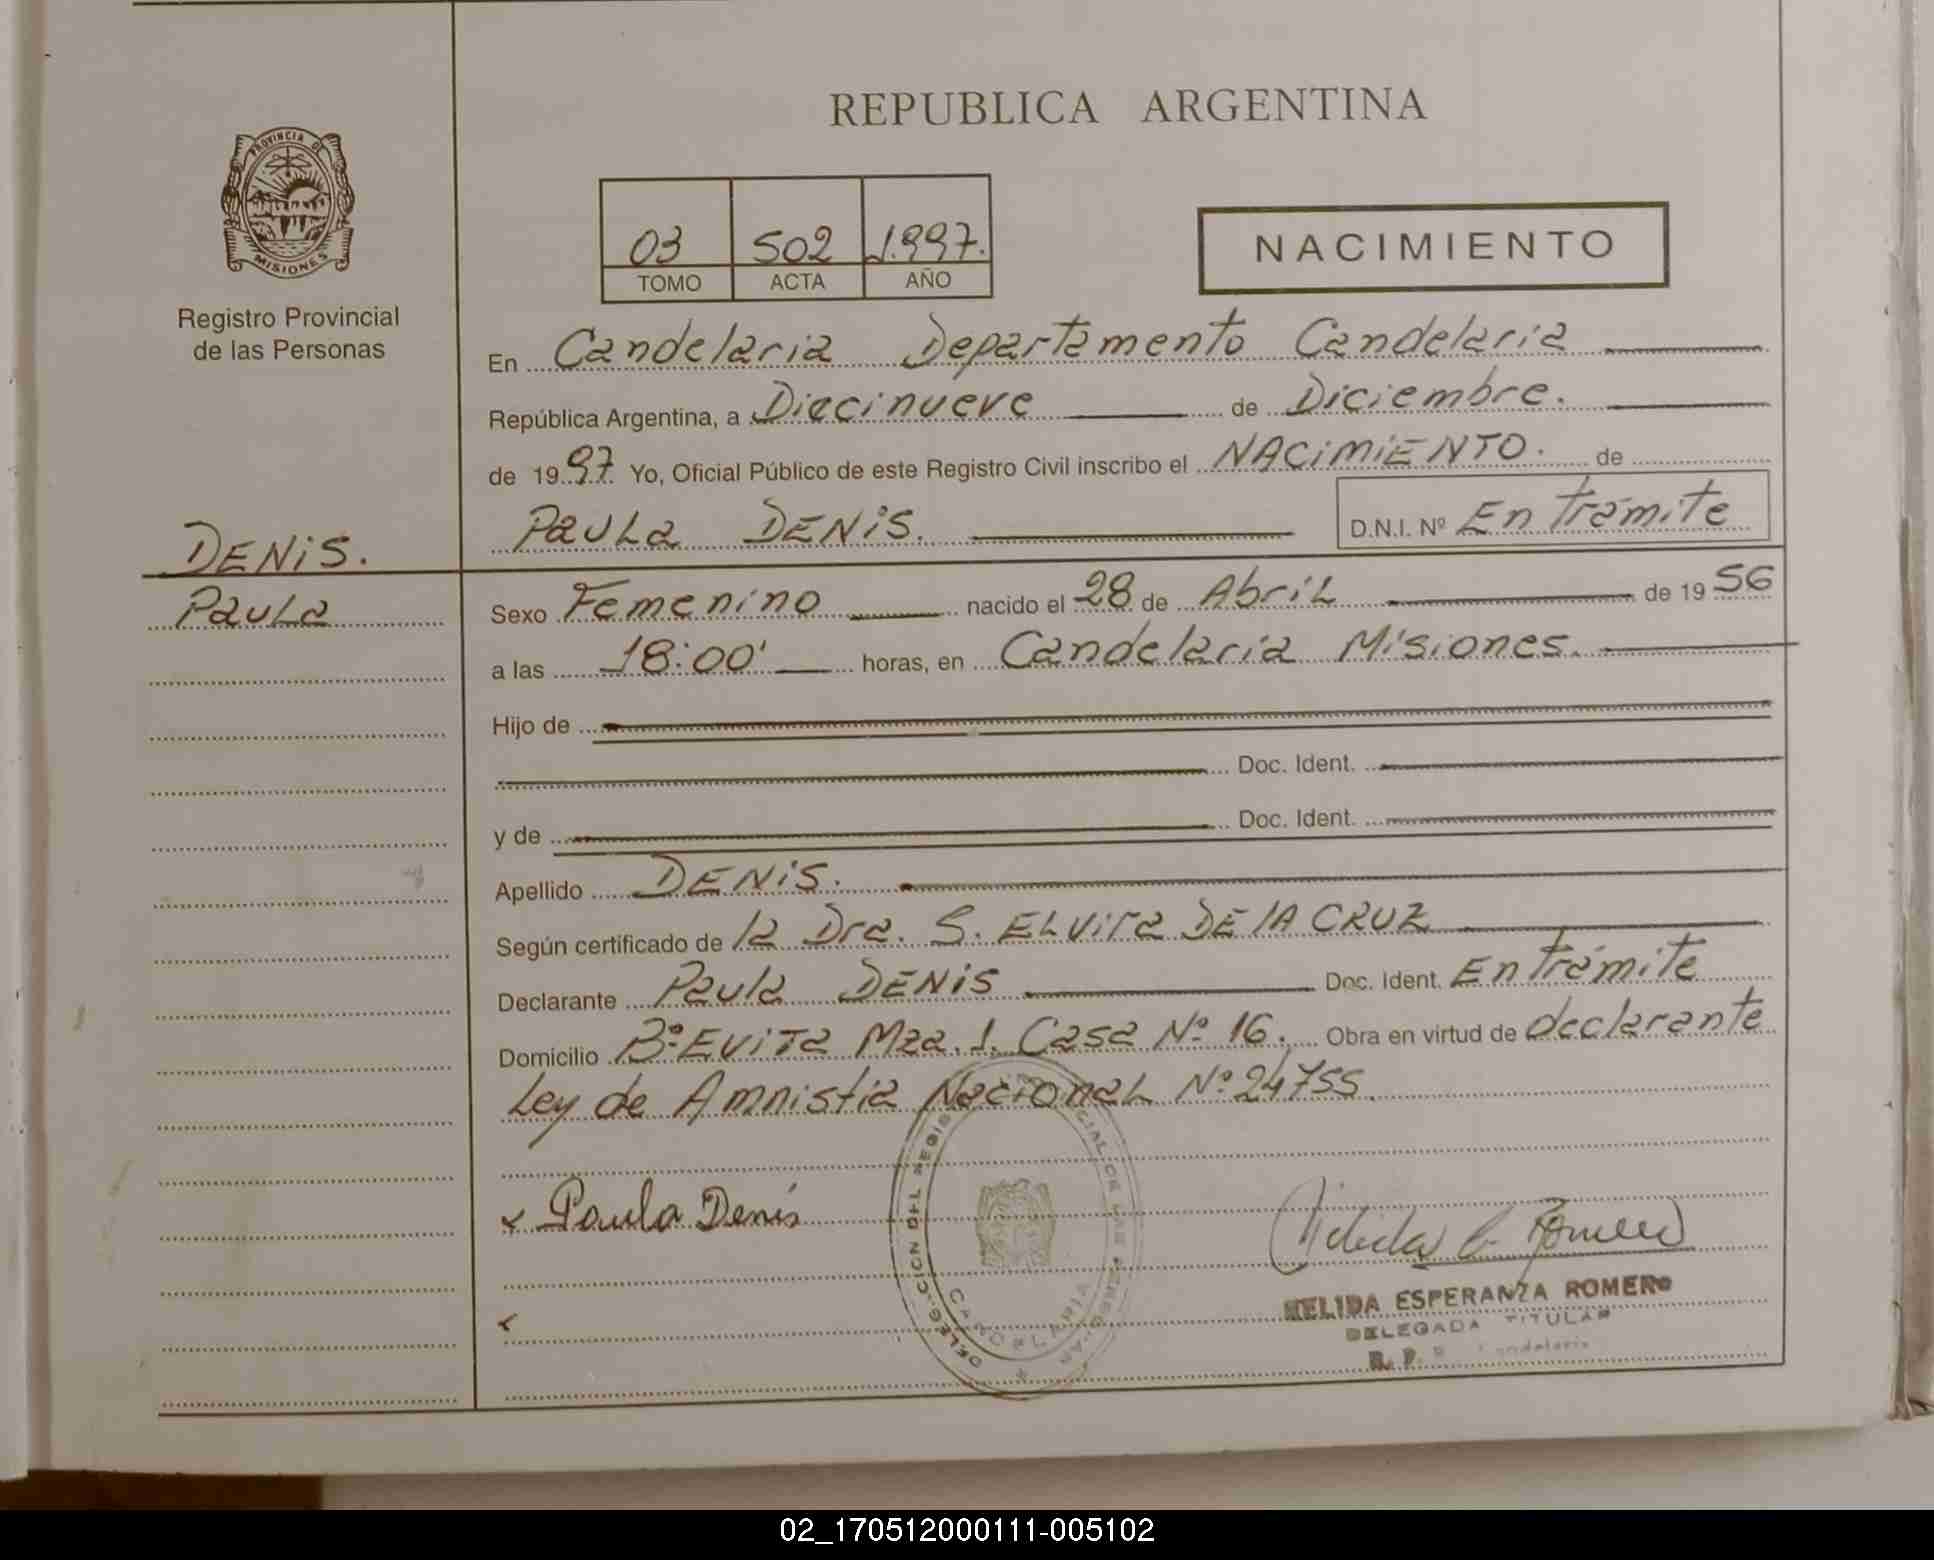 REPUBLICA ARGENTINA
PROVINCIA DE
MISIONES
Registro Provincial
de las Personas
03 502 1.997.
TOMO ACTA AÑO
NACIMIENTO
En Candelaria Departamento Candelaria
República Argentina, a Diecinueve de Diciembre.
de 1997. Yo, Oficial Público de este Registro Civil inscribo el NACiMiENTO. de
PAULA DENiS. D.N.I. Nº En Trámite
DENiS.
PAULA
Sexo Femenino nacido el 28 de Abril de 1956
a las 18:00' horas, en Candelaria Misiones.
Hijo de
Doc. Ident.
y de Doc. Ident.
Apellido DENiS.
Según certificado de la Dra. S. ELVirA DE lA CRUZ
Declarante Paula DENiS Doc. Ident. En Trámite
Domicilio Bº EViTA Mza. 1. Casa Nº 16. Obra en virtud de declarante
Ley de Amnistía Nacional Nº 24755.
Paula Denis
Nélida E. Romero
NELIDA ESPERANZA ROMERO
DELEGADA TITULAR
R. P. Candelaria
CANDELARIA
02_170512000111-005102